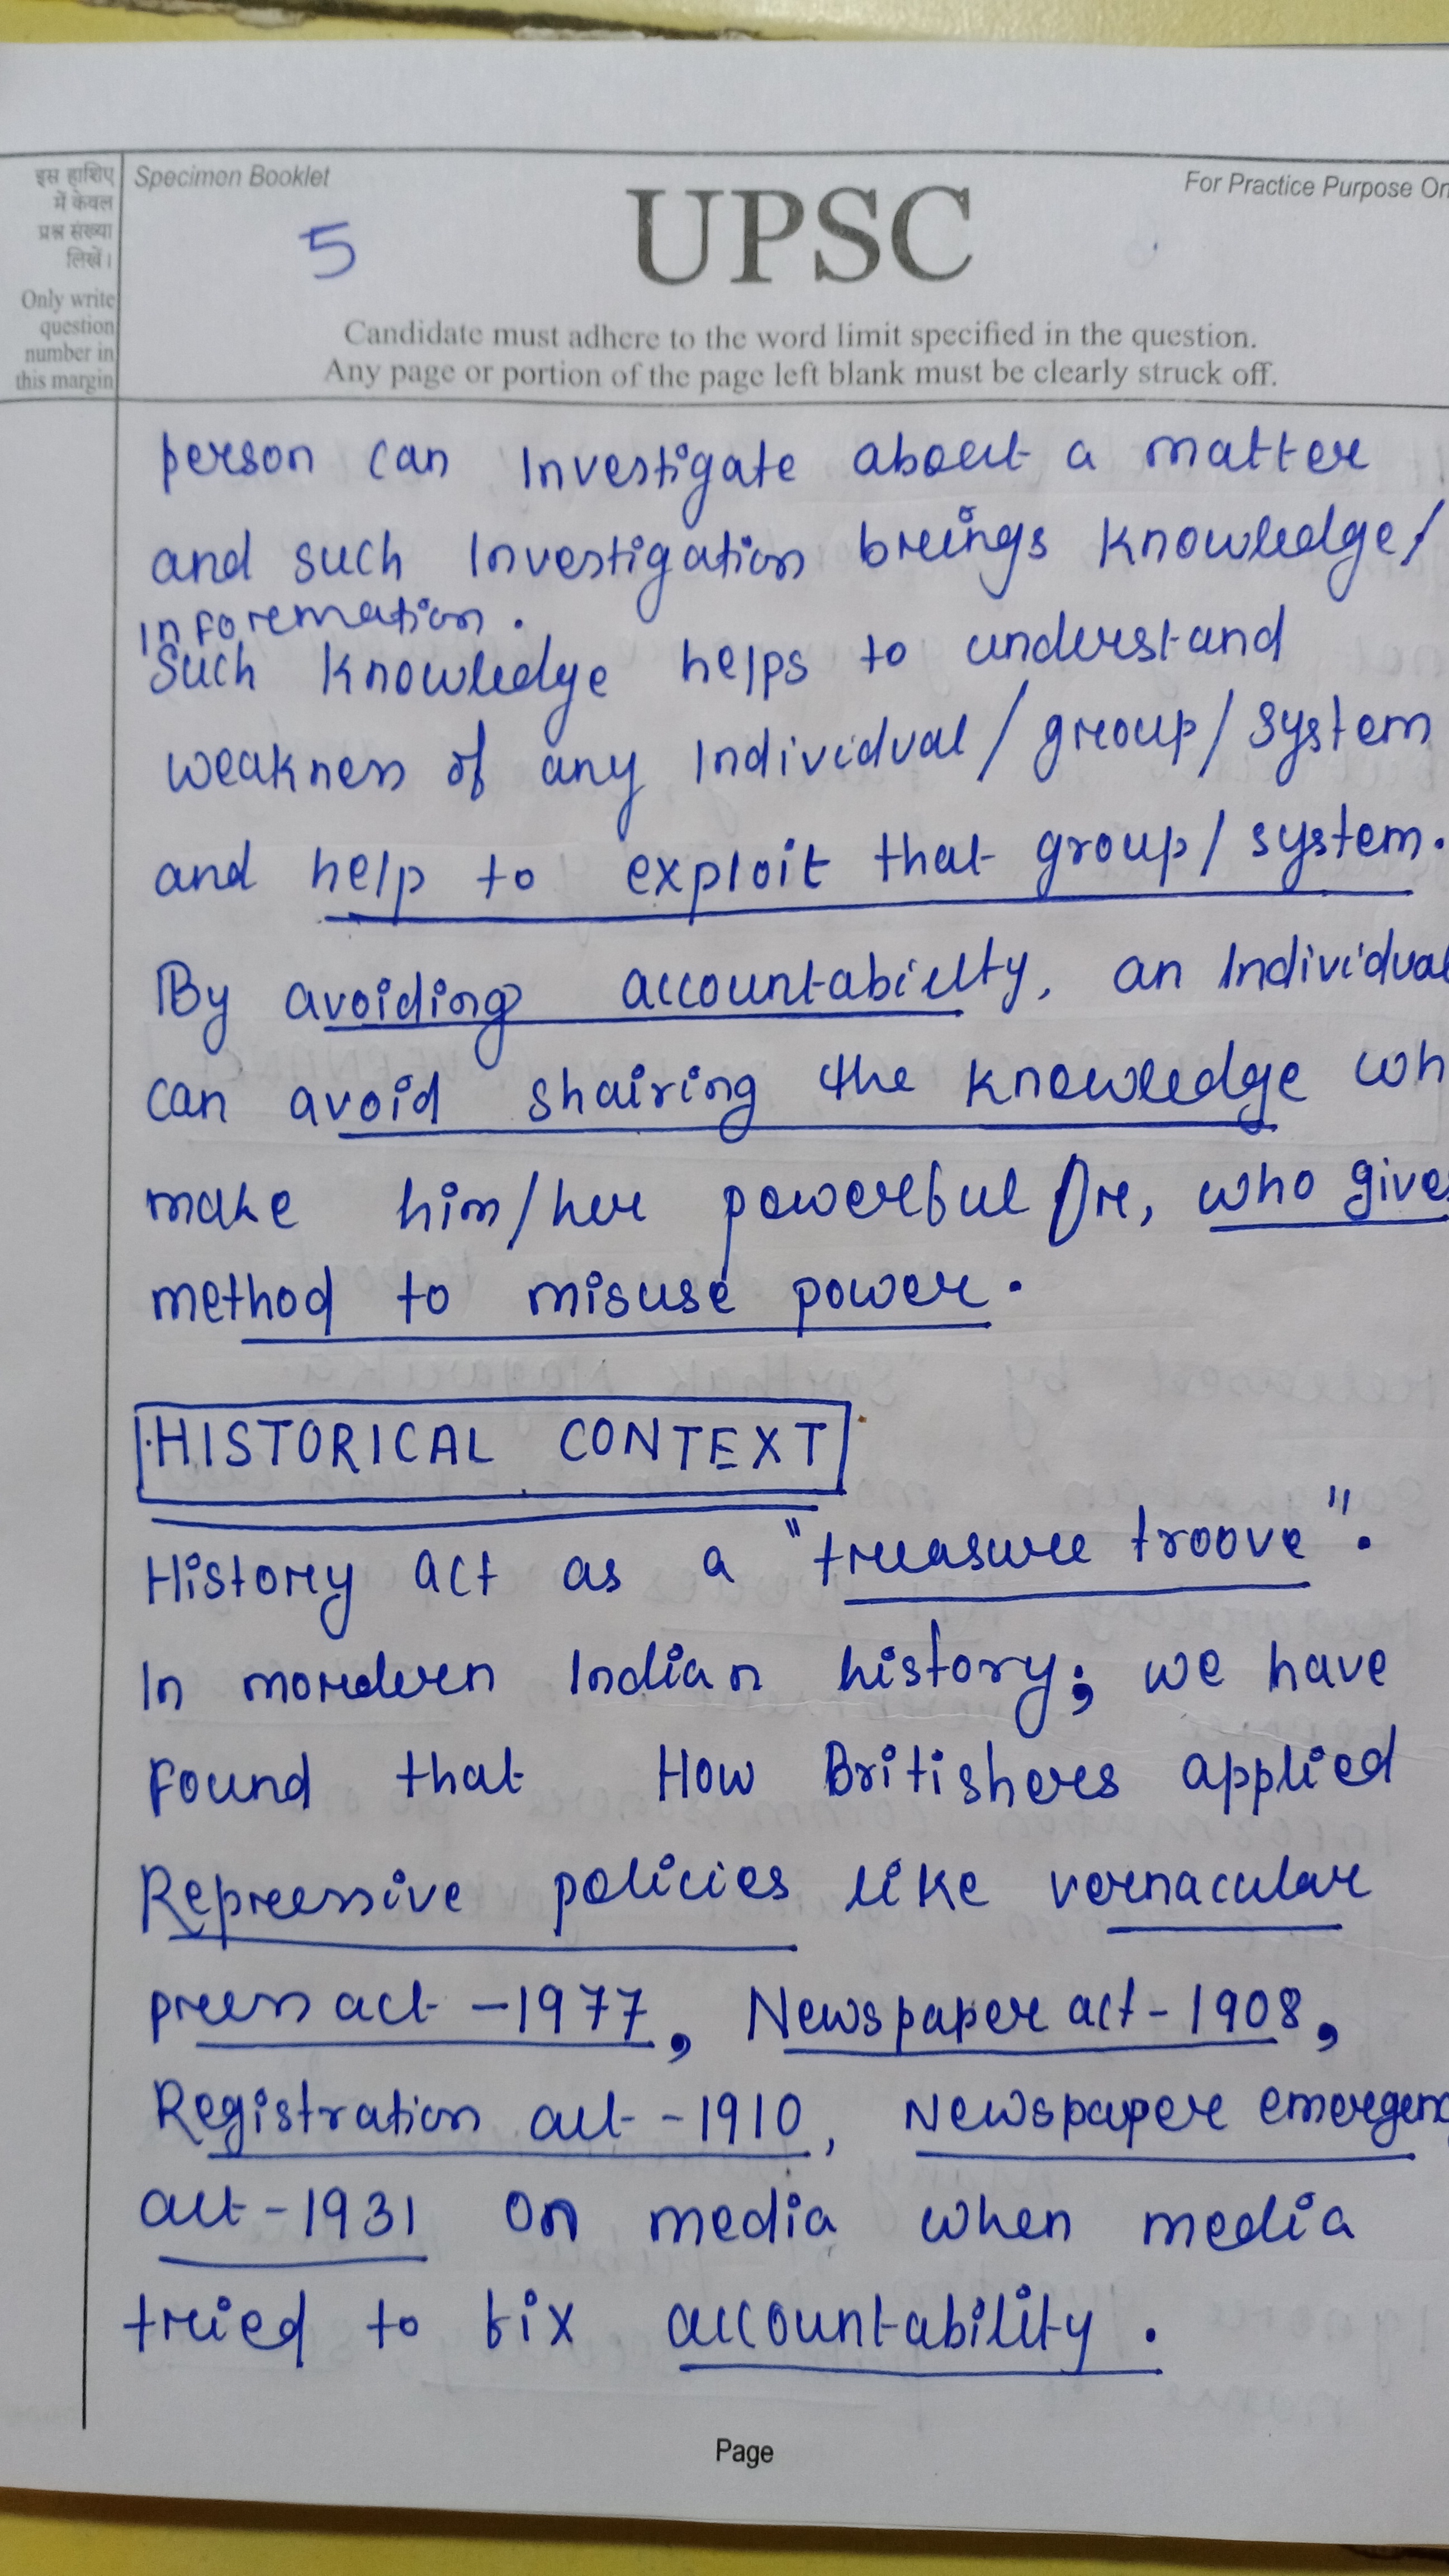 इस हाशिए
में केवल
प्रश्न संख्या
लिखें।
Only write
question
number in
this margin
Specimen Booklet
For Practice Purpose On
5
UPSC
Candidate must adhere to the word limit specified in the question.
Any page or portion of the page left blank must be clearly struck off.
person can Investigate about a matter
and such Investigation brings knowledge/
information.
Such knowledge helps to understand
weakness of any Individual/group/system
and help to exploit that group/system.
By avoiding accountabielty, an Individual
can avoid shairing the knowledge wh
make him/her powerful Or, who gives
method to misuse power.
HISTORICAL CONTEXT
History act as a "treasure troove".
In mordern Indian history; we have
Found that How Britishers applied
Repressive policies like vernacular
press act -1977, Newspaper act - 1908,
Registration act -1910, Newspaper emergenc
act-1931 on media when media
tried to fix accountability.
Page